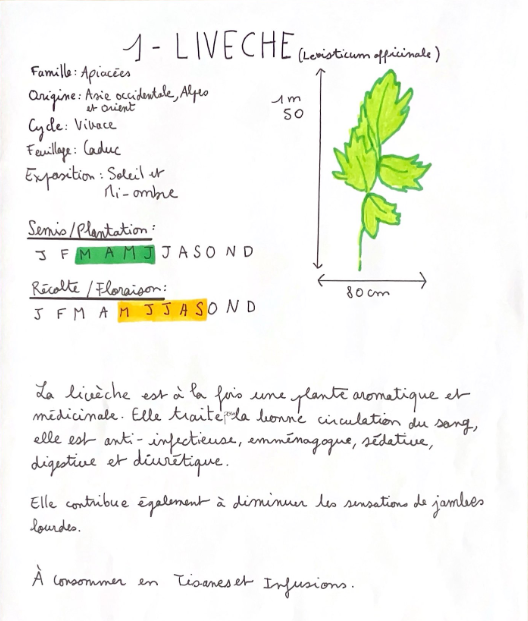 1 - LIVECHE (Levisticum officinale)
Famille : Apiacées
Origine : Asie occidentale, Alpes
et orient
Cycle : Vivace
Feuillage : Caduc
Exposition : Soleil et
Mi-ombre
1m
50
80 cm
Semis/Plantation :
J F M A M J J A S O N D
Récolte / Floraison :
J F M A M J J A S O N D
La livèche est à la fois une plante aromatique et
médicinale. Elle traite la bonne circulation du sang,
elle est anti-infectieuse, emménagogue, sédative,
digestive et diurétique.
Elle contribue également à diminuer les sensations de jambes
lourdes.
À consommer en Tisanes et Infusions.